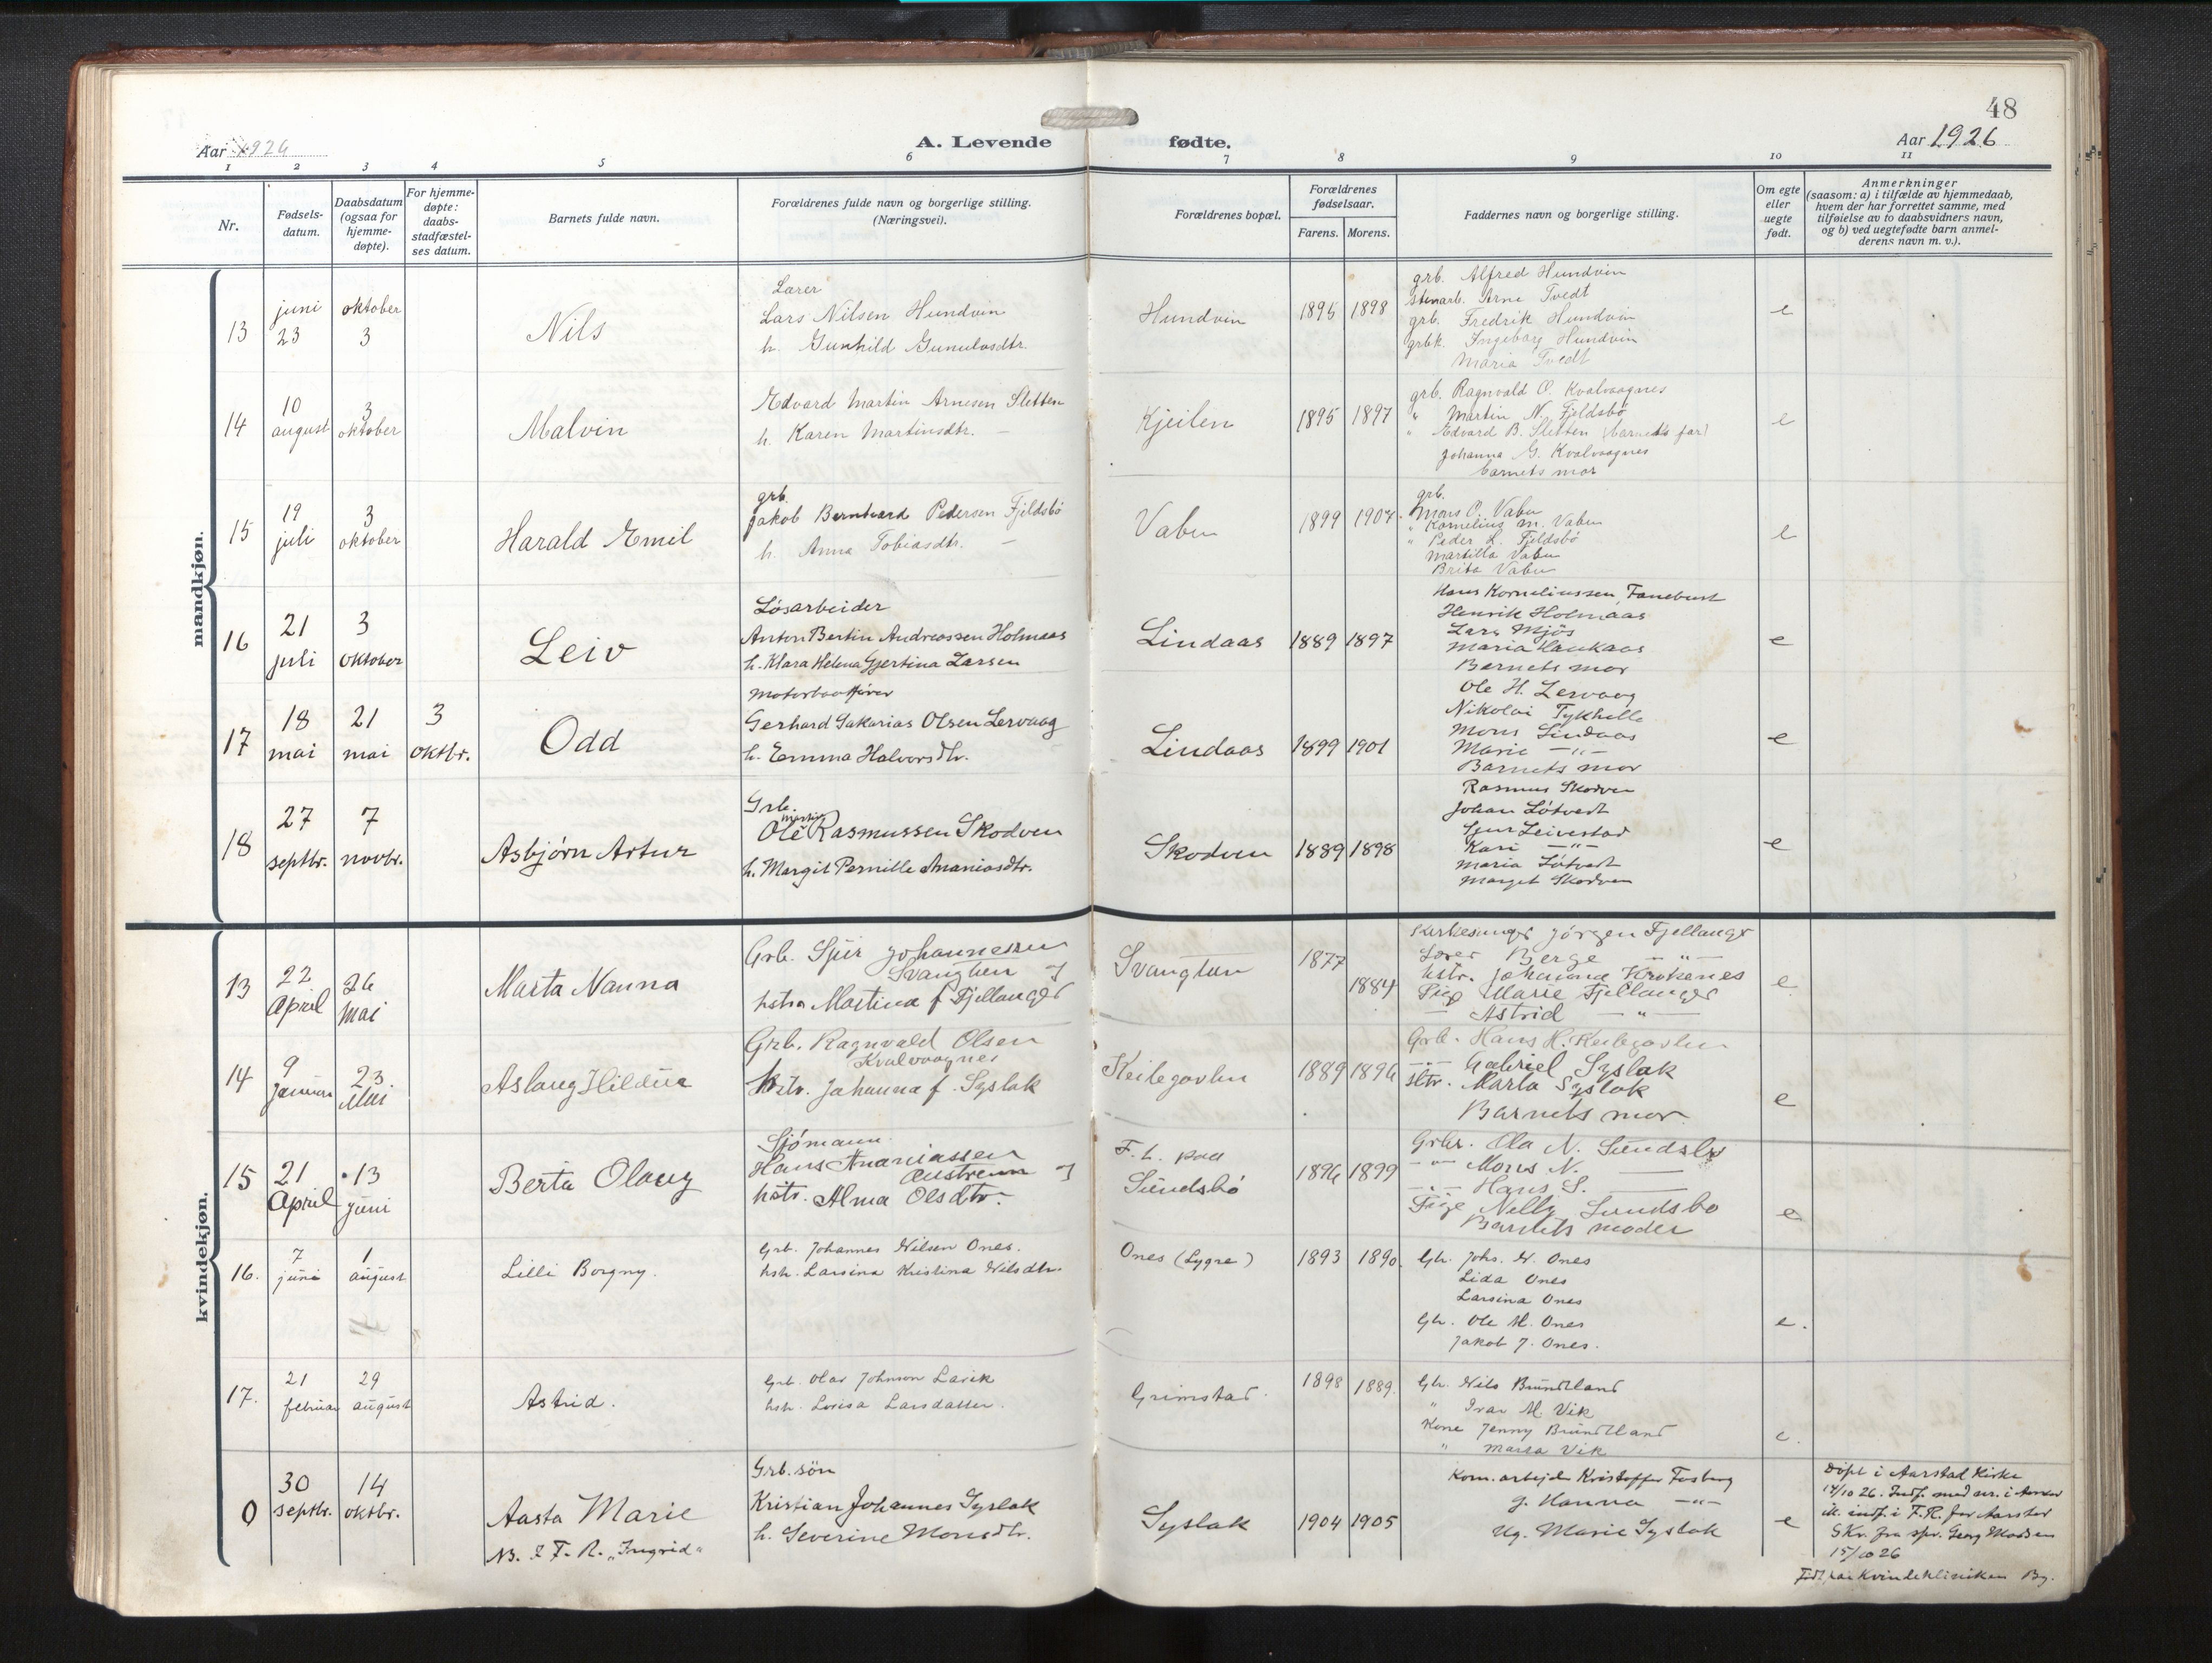 48
Aar 1926
A. Levende fødte.
Aar 1926
1 2 3 4 5 6 7 8 9 10 11
Nr.
Fødsels-
datum.
Daabsdatum
(ogsaa for
hjemme-
døpte).
For hjemme-
døpte:
daabs-
stadfæstel-
ses datum.
Barnets fulde navn.
Forældrenes fulde navn og borgerlige stilling.
(Næringsvei).
Forældrenes bopæl.
Forældrenes
fødselsaar.
Farens. Morens.
Faddernes navn og borgerlige stilling.
Om egte
eller
uegte
født.
Anmerkninger
(saasom: a) i tilfælde av hjemmedaab,
hvem der har forrettet samme, med
tilføielse av to daabsvidners navn,
og b) ved uegtefødte barn anmel-
derens navn m. v.).
mandkjøn.
13
juni
23
oktober
3
Nils
Lærer
Lars Nilsen Hundvin
h. Gunhild Gunulvsdtr.
Hundvin
1895 1898
grb. Alfred Hundvin
Arne Tvedt
grb. Fredrik Hundvin
grbk. Ingeborg Hundvin
Maria Tvedt
e
14
10
august
3
oktober
Malvin
Edvard Martin Arnesen Sletten
h. Karen Martinsdtr. —
Kjeilen
1895 1897
grb. Ragnvald O. Kvalvaagnes
" Martin N. Fjeldsbø
" Edvard B. Sletten (barnets far)
Johanna G. Kvalvaagnes
barnets mor
e
15
19
juli
3
oktober
Harald Emil
grb.
Jakob Bernhard Pedersen Fjeldsbø
h. Anna Tobiasdtr. —
Vabu
1899 1904
grb.
Mons O. Vabu
" Kornelius M. Vabu
" Peder L. Fjeldsbø
Martilla Vabu
Brita Vabu
e
16
21
juli
3
oktober
Leiv
Løsarbeider
Anton Bertin Andreassen Holmaas
h. Klara Helena Gjertina Larsen
Lindaas
1889 1897
Hans Korneliussen Fanebust
Henrik Holmaas
Lars Mjøs
Maria Haukaas
Barnets mor
e
17
18
mai
21
mai
3
oktbr.
Odd
Motorbaatfører
Gerhard Sakarias Olsen Lervaag
h. Emma Halvorsdtr.
Lindaas
1899 1901
Ole H. Lervaag
Nikolai Tykhelle
Mons Lindaas
Marie —"—
Barnets mor
e
18
27
septbr.
7
novbr.
Asbjørn Artur
Grb.
Martin
Ole Rasmussen Skodven
h. Margit Pernille Ananiasdtr.
Skodven
1889 1898
Rasmus Skodven
Johan Løtvedt
Sjur Leivestad
Kari —"—
Maria Løtvedt
Marget Skodven
e
kvindekjøn.
13
22
April
26
Mai
Marta Nanna
Grb. Sjur Johannessen
Svangtun
hstr. Martina f. Fjellanger
Svangtun
1877
1884
Kirkesanger Jørgen Fjellanger
Lærer Berge —"—
hstr. Johanna Krokenes
Pige Marie Fjellanger
— Astrid —"—
e
14
9
Januar
23.
Mai
Aslaug Hildur
Grb. Ragnvald Olsen
Kvalvaagnes
hstr. Johanna f. Syslak
Keilegavlen
1889 1896
Grb. Hans H. Keilegavlen
—"— Gabriel Syslak
Marta Syslak
Barnets mor.
e
15
21
April
13
juni
Berta Olaug
Sjømann
Hans Ananiassen
Austrem
hstr. Alma Olsdtr.
F. h. paa
Sundsbø
1896 1899
Grbr. Ola N. Sundsbø
—"— Mons N. ———
—"— Hans S. ———
Pige Nelly Sundsbø
Barnets moder
e
16.
7
juni
1
august
Lilli Borgny.
Grb. Johannes Nilsen Ones.
hstr. Larsina Kristina Nilsdtr.
Ones (Lygre)
1893 1890.
Gb. Johs. N. Ones
Lida Ones
Larsina Ones
Gb. Ole M. Ones
Jakob J. Ones.
e.
17.
21
februar
29
august
Astrid.
Grb. Olav Johnson Larik
hstr. Lovisa Larsdatter.
Grimstad.
1898 1889.
Gb. Nils Brundtland
" Ivar M. Vik
Kone Jenny Brundtland
" Marta Vik
e.
0
30
septbr.
14
oktbr.
Aasta Marie
NB. I F. R. „Ingrid"
Grb.søn
Kristian Johannes Syslak
h. Severine Monsdtr.
Syslak
1904 1905
Kom. arbejder Kristoffer Fosberg
g. Hanna —"—
ug. Marie Syslak
e
Døpt i Aarstad Kirke
14/10 26. Indf. med nr. i Aarstad
ik. indf. i F.R. for Aarstad
S.Kr. fra spr. Georg
15/10 26
Født paa Kvindeklinikken By.